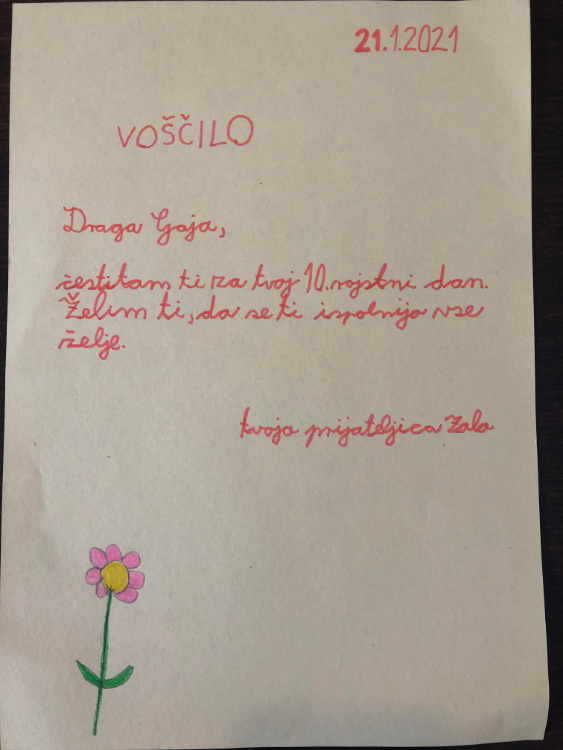 21.1.2021
VOŠČILO
Draga Gaja,
čestitam ti za tvoj 10. rojstni dan.
Želim ti, da se ti ispolnija vse
želje.
tvoja prijateljica Zala